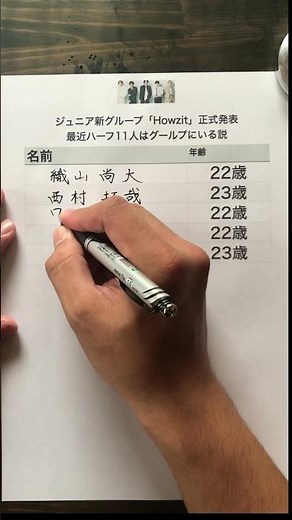 ジュニア新グループ「Howzit」正式発表
最近ハーフ11人はグループにいる説
名前 年齢
織山 尚大 22歳
西村 拓哉 23歳
22歳
22歳
23歳